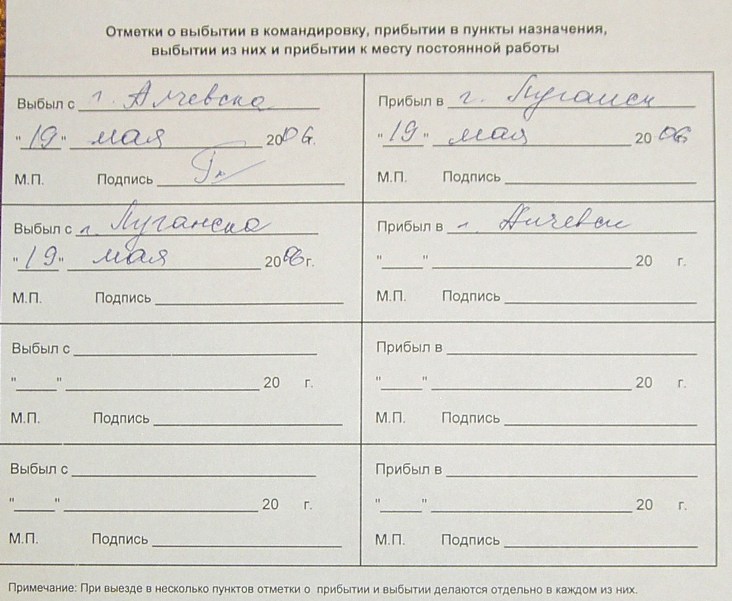 Отметки о выбытии в командировку, прибытии в пункты назначения,
выбытии из них и прибытии к месту постоянной работы
Выбыл с г. Алчевска
"19" мая 2006г.
М.П. Подпись
Прибыл в г. Луганск
"19" мая 20 06
М.П. Подпись
Выбыл с г. Луганска
"19" мая 2006г.
М.П. Подпись
Прибыл в г. Алчевск
"____" ____ 20 г.
М.П. Подпись
Выбыл с
"____" ____ 20 г.
М.П. Подпись
Прибыл в
"____" ____ 20 г.
М.П. Подпись
Выбыл с
"____" ____ 20 г.
М.П. Подпись
Прибыл в
"____" ____ 20 г.
М.П. Подпись
Примечание: При выезде в несколько пунктов отметки о прибытии и выбытии делаются отдельно в каждом из них.